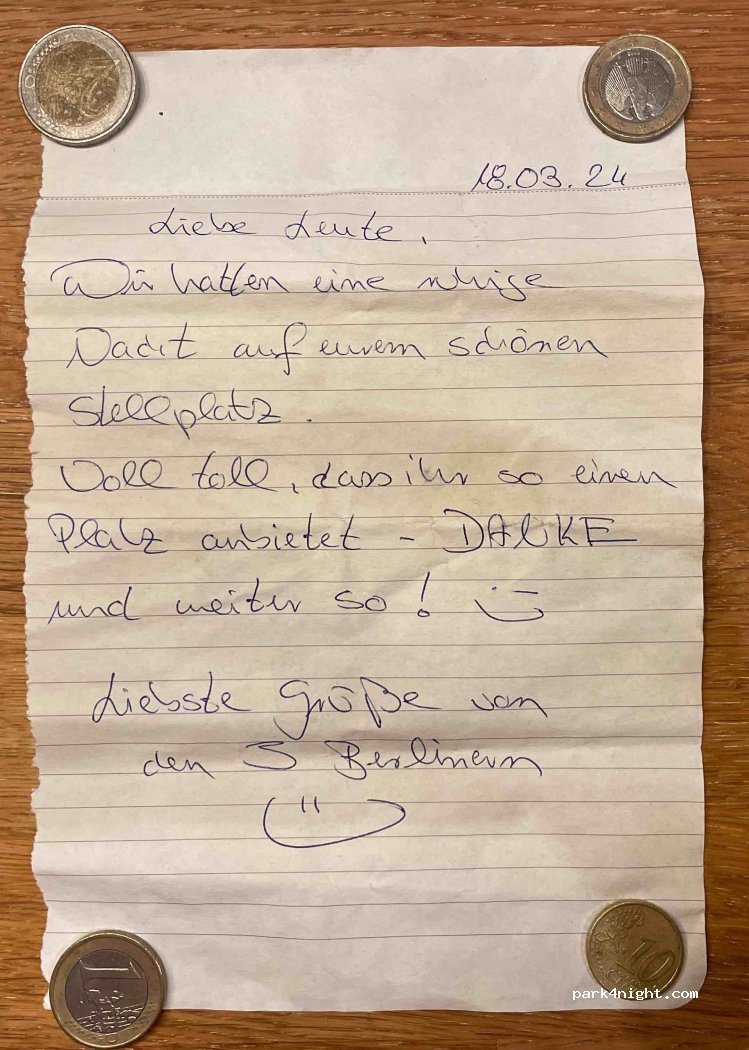 18.03.24
Liebe Leute,
Wir hatten eine ruhige
Nacht auf eurem schönen
Stellplatz.
Voll toll, dass ihr so einen
Platz anbietet - DANKE
und weiter so!
Liebste Grüße von
den 3 Berlinern
1
10
park4night.com